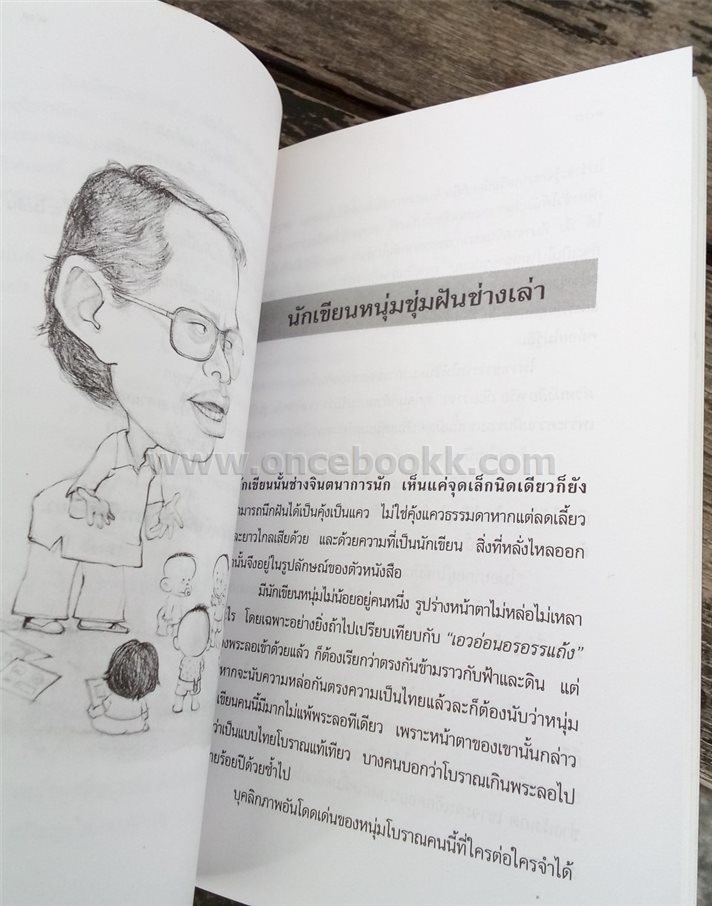 นักเขียนหนุ่มชุ่มฝันช่างเล่า
www.oncebookk.com
กเขียนนั้นช่างจินตนาการนัก เห็นแค่จุดเล็กนิดเดียวก็ยัง
ามารถนึกฝันได้เป็นคุ้งเป็นแคว ไม่ใช่คุ้งแควธรรมดาหากแต่ลดเลี้ยว
ละยาวไกลเสียด้วย และด้วยความที่เป็นนักเขียน สิ่งที่หลั่งไหลออก
านั้นจึงอยู่ในรูปลักษณ์ของตัวหนังสือ
มีนักเขียนหนุ่มไม่น้อยอยู่คนหนึ่ง รูปร่างหน้าตาไม่หล่อไม่เหลา
ไร โดยเฉพาะอย่างยิ่งถ้าไปเปรียบเทียบกับ “เอวอ่อนอรอรรแถ้ง”
องพระลอเข้าด้วยแล้ว ก็ต้องเรียกว่าตรงกันข้ามราวกับฟ้าและดิน แต่
หากจะนับความหล่อกันตรงความเป็นไทยแล้วละก็ต้องนับว่าหนุ่ม
เขียนคนนี้มีมากไม่แพ้พระลอทีเดียว เพราะหน้าตาของเขานั้นกล่าว
ว่าเป็นแบบไทยโบราณแท้เทียว บางคนบอกว่าโบราณเกินพระลอไป
ายร้อยปีด้วยซ้ำไป
บุคลิกภาพอันโดดเด่นของหนุ่มโบราณคนนี้ที่ใครต่อใครจำได้